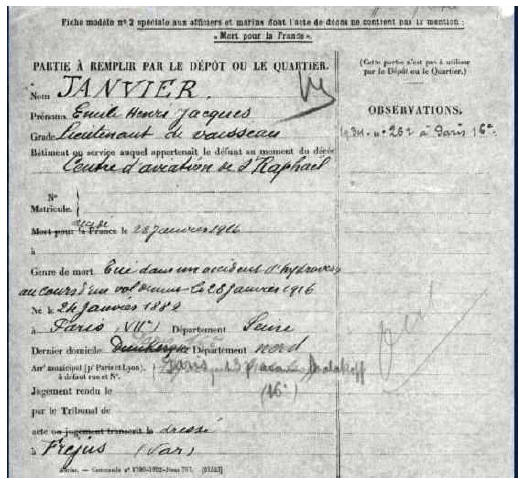 Fiche modèle n° 2 spéciale aux officiers et marins dont l'acte de décès ne contient pas la mention :
« Mort pour la France ».
PARTIE À REMPLIR PAR LE DÉPÔT OU LE QUARTIER.
(Cette partie n'est pas à utiliser
par le Dépôt ou le Quartier.)
Nom JANVIER.
Prénoms Emile Henri Jacques
OBSERVATIONS.
Grade Lieutenant de vaisseau
n° 262 à Paris 16e
Bâtiment ou service auquel appartenait le défunt au moment du décès
Centre d'aviation de St Raphaël
N°
Matricule.
Mort pour la France le 28 Janvier 1916
à
Genre de mort Tué dans un accident d'hydravion
au cours d'un vol le 28 Janvier 1916
Né le 24 Janvier 1882
à Paris (VIIe) Département Seine
Dernier domicile Dunkerque Département nord
Arrt municipal (pr Paris et Lyon).
à défaut rue et N°.
Paris, Malakoff
(16e)
Jugement rendu le
par le Tribunal de
acte ou jugement transcrit le dressé
à Fréjus (Var)